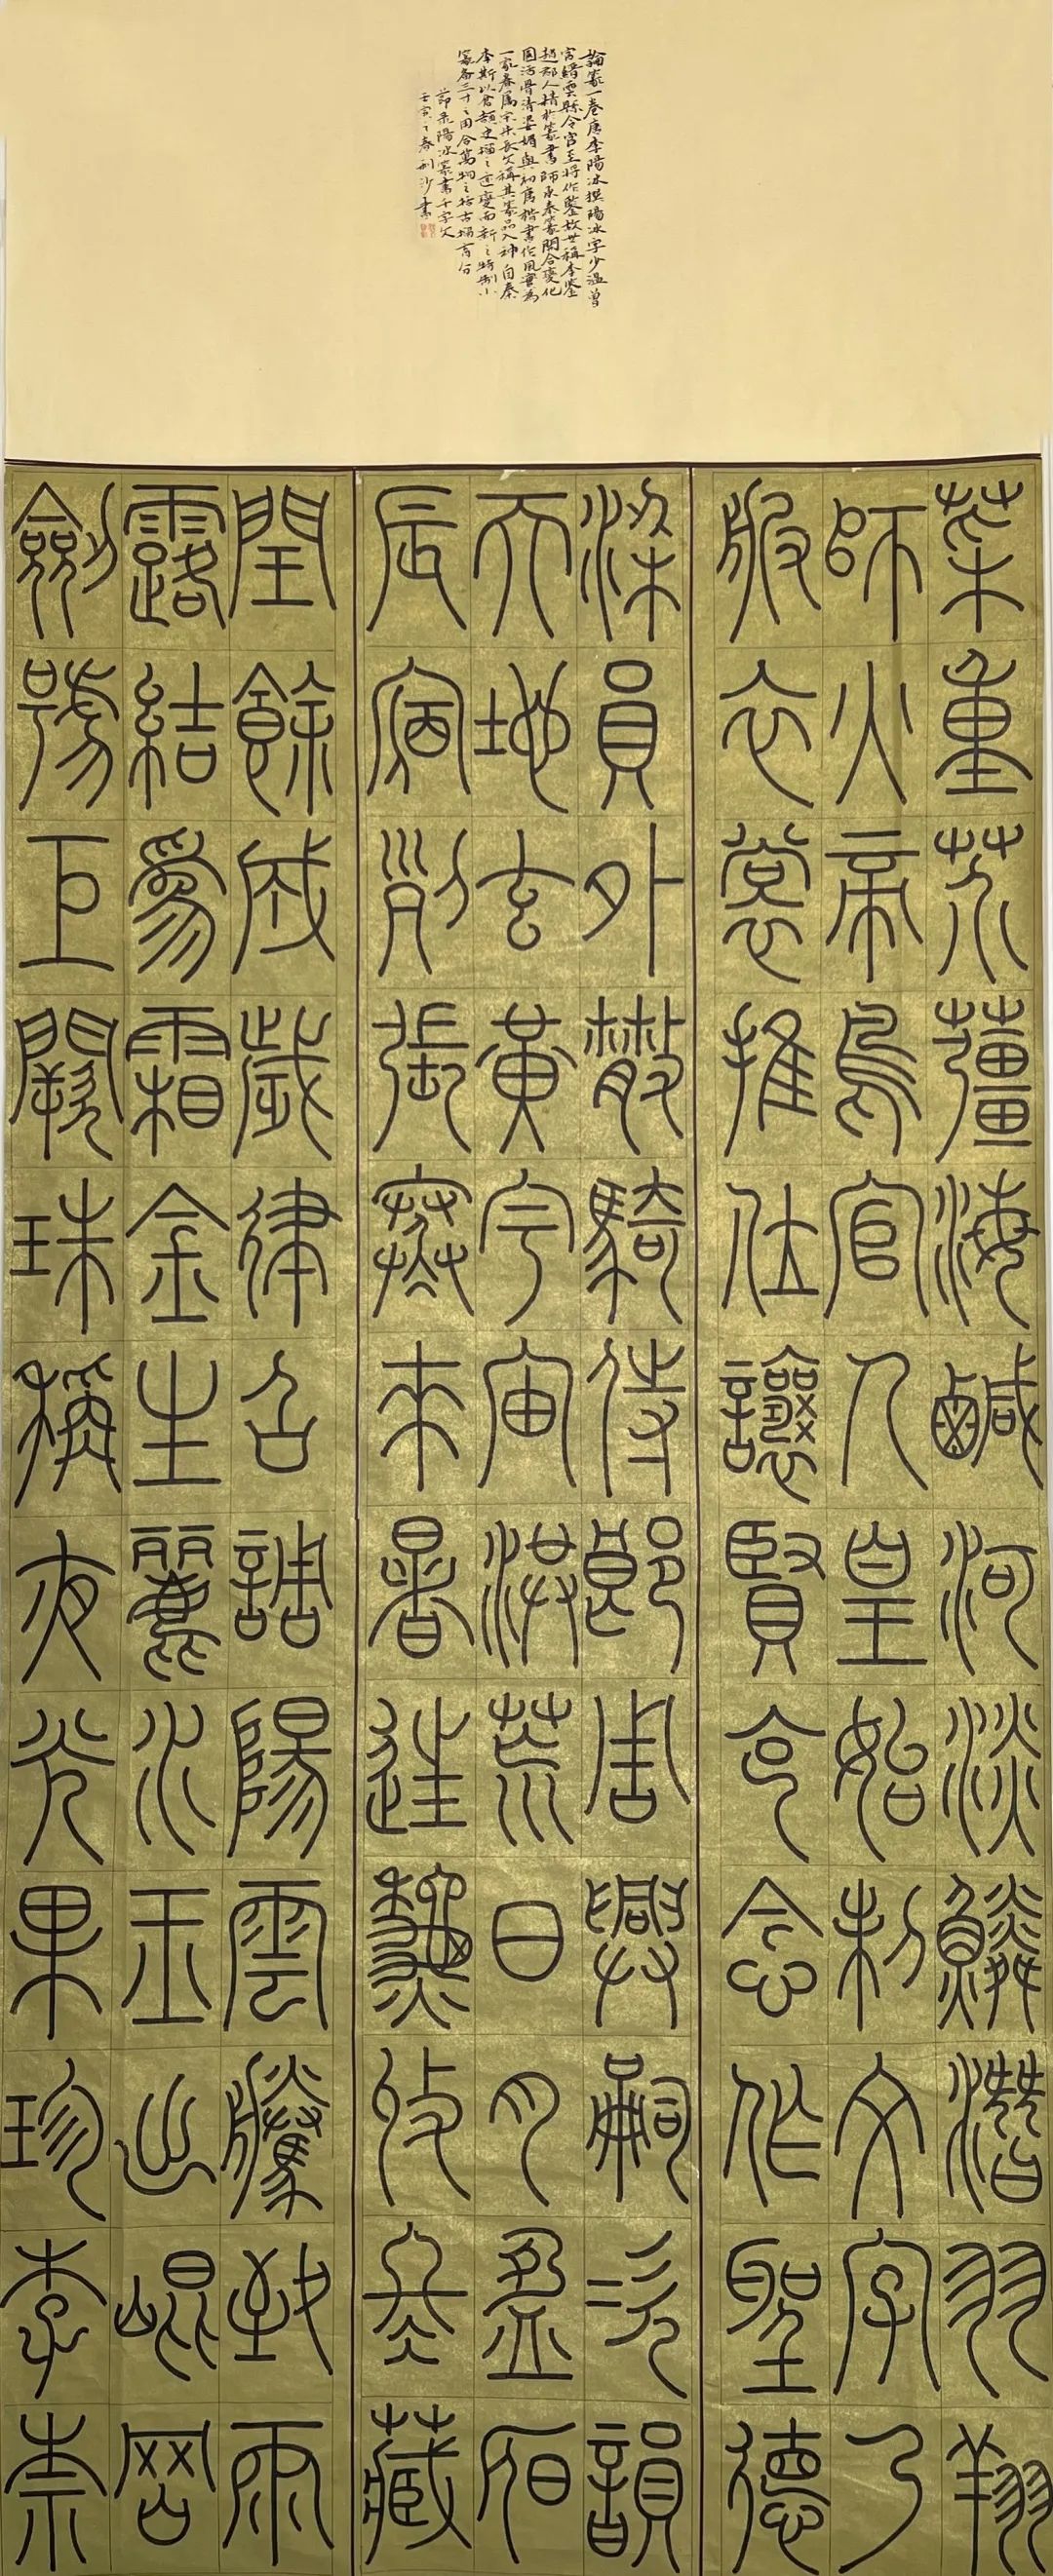 論篆一卷唐李陽冰撰陽冰字少溫曾
官縉雲縣令官至將作鑒故世稱李鑒
趙郡人精於篆書師承秦篆開合變化
圓活骨清姿媚與初唐楷書作風實為
一家眷屬宋朱長文稱其篆品入神自秦
李斯以倉頡史籀之迹變而新之特制小
篆備三才之用合萬物之
節錄陽冰篆書千字文
壬寅之春 沙書
菜重芥薑海鹹河淡鱗潛羽翔
師火帝鳥官人皇始制文字乃
服衣裳推位讓賢克念作聖德
梁員外散騎侍郎周興嗣次韻
天地玄黃宇宙洪荒日月盈昃
辰宿列張寒來暑往秋收冬藏
閏餘成歲律呂調陽雲騰致雨
露結為霜金生麗水玉出崐岡
劍號巨闕珠稱夜光果珍李柰